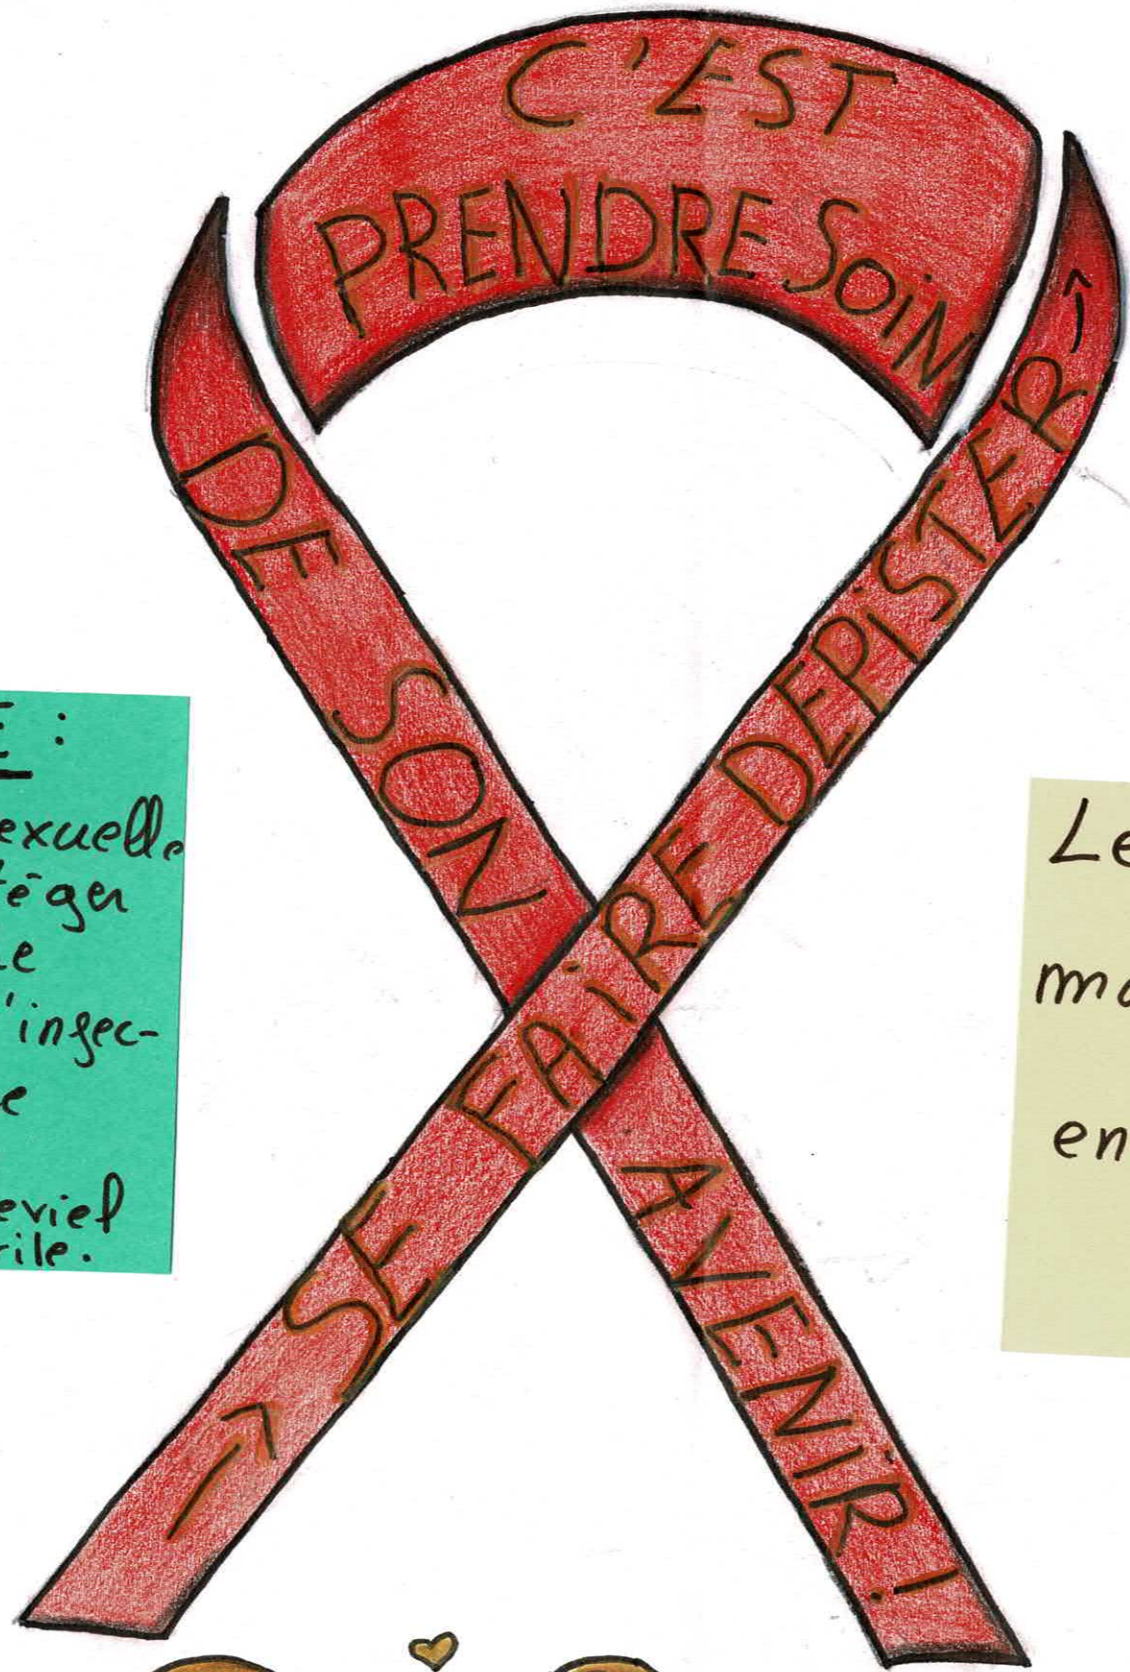 → SE FAIRE DEPISTER →
C'EST
PRENDRE SOIN
DE SON AVENIR !
E :
exuelle
téger
'infec-
rile.
Le
en